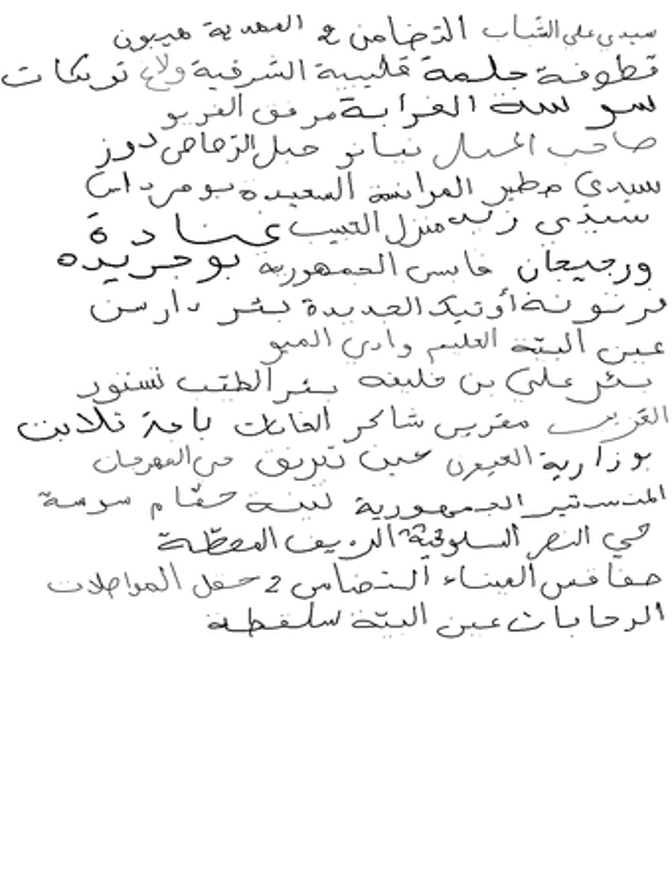 سيدي علي الشباب التضامن 2 المهدية هيبون
قطوفة جلمة قليبية الشرقية ولاغ تريكات
سوسة الغرابة مرفق الغريو
صاحب الجبل نيانو جبل الرصاص دوز
سيدي مطير الفرائسة السعيدة بومرداس
سيدي زيد منزل الحبيب عبادة
ورجيجان قابس الجمهورية بوجريده
فرنونة أوتيك الجديدة بئر دارسن
عين البيّة العليم وادي الميو
بئر علي بن خليفه بئر الطيّب تستور
مقرين شاكر الغابات باجة تلابت
بوزارية العيون عين تبرنق حي المهرجان
المنستير الجمهورية لبنة حمّام سوسة
حي النصر السلوقية الريف المحطّة
صفاقس الميناء التضامن 2 حفل المواصلات
الرحابات عين البيّة سلقطة